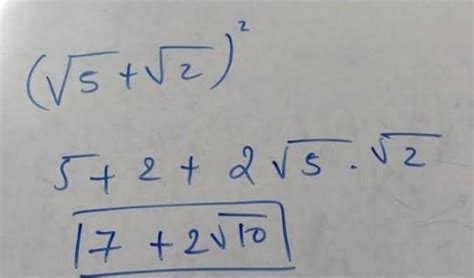 (√5 + √2)²
5 + 2 + 2√5 . √2
7 + 2√10